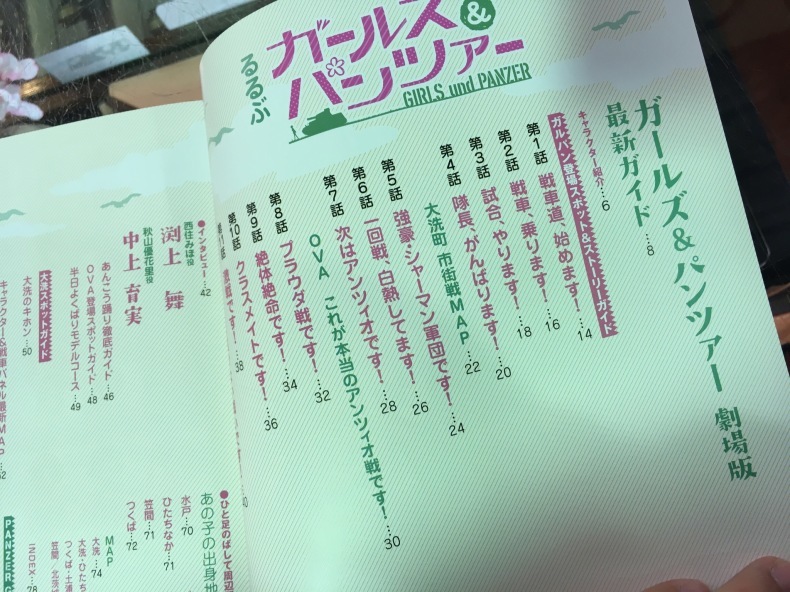 るるぶ
ガールズ&
パンツァー
GIRLS und PANZER
ガールズ&パンツァー 劇場版
最新ガイド …8
キャラクター紹介…6
ガルパン登場スポット&ストーリーガイド
第1話 戦車道、始めます!…14
第2話 戦車、乗ります!…16
第3話 試合、やります!…18
第4話 隊長、がんばります!…20
大洗町 市街戦MAP…22
第5話 強豪・シャーマン軍団です!…24
第6話 一回戦、白熱してます!…26
第7話 次はアンツィオです!…28
OVA これが本当のアンツィオ戦です!…30
第8話 プラウダ戦です!…32
第9話 絶体絶命です!…34
第10話 クラスメイトです!…36
です!…38
40
●インタビュー…42
西住みほ役
渕上 舞
秋山優花里役
中上 育実
あんこう踊り徹底ガイド…46
OVA登場スポットガイド…48
半日よくばりモデルコース…49
大洗スポットガイド
大洗のキホン…50
キャラクター&戦車パネル最新MAP…52
●ひと足のばして周辺
あの子の出身地
水戸…70
ひたちなか…71
笠間…71
つくば…72
MAP
大洗…74
大洗・ひたち
つくば・土浦
笠間・北茨城
INDEX…78
PANZER